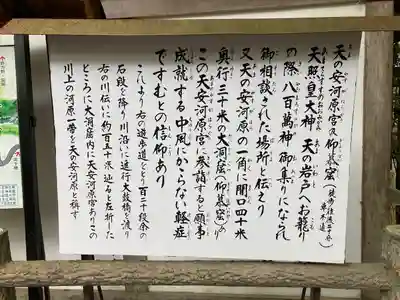 天の安河原宮及仰慕窟（徒歩往復三十分
天照皇大神　天の岩戸へお籠り
の際　八百萬神　御集りになられ
御相談された場所と伝えり
又天の安河原の一角に間口四十米
奥行三十米の大洞窟（仰慕窟）あり
この天安河原宮に参詣すると願事
成就する中風にかゝらない軽症
ですむとの信仰あり
これより右の遊歩道をとり百二十段余の
石段を降り川沿いに進行大鼓橋を渡り
右の川伝いに約百五十米辺ると左折した
ところに大洞窟内に天安河原宮ありこの
川上の河原一帯を天の安河原と称す